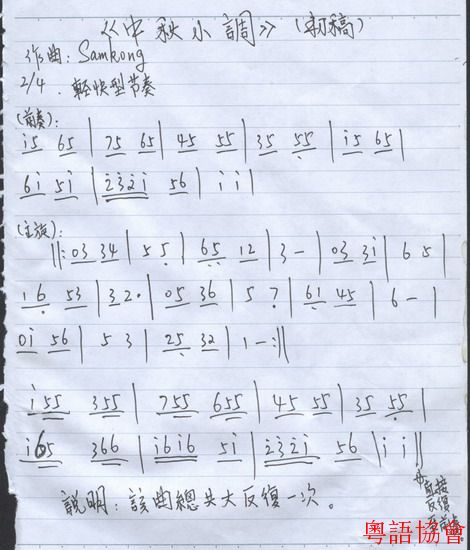 《中秋小調》(初稿)
作曲:Samkong
2/4. 輕快型节奏
(前奏):
i5 65 | 75 65 | 45 55 | 35 55 | i5 65 |
6i 5i | 232i 56 | i i |
(主旋):
||: 03 34 | 5 5 | 65 12 | 3 - | 03 3i | 6 5 |
16 53 | 32· | 05 36 | 5 ? | 61 45 | 6 - |
0i 56 | 5 3 | 25 32 | 1 - :||
i55 355 | 755 655 | 45 55 | 35 55 |
i65 366 | i6i6 5i | 232i 56 | i i ||
直接
反復
至前奏
說明:該曲總共大反復一次。
粵語協會